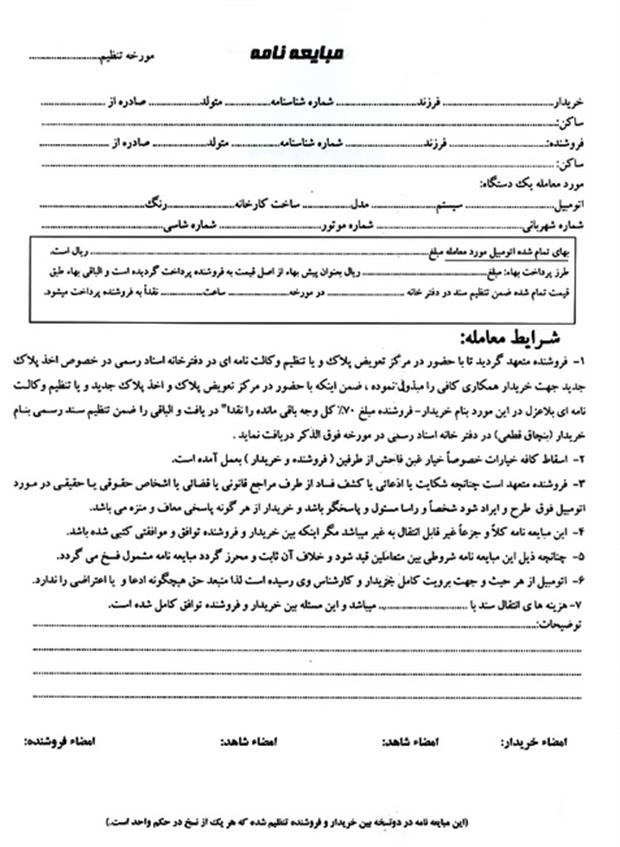 مبایعه نامه
مورخه تنظیم....................
خریدار............................ فرزند.................... شماره شناسنامه............. متولد............... صادره از ..................
ساکن:..............................................................................................................
فروشنده:......................... فرزند.................... شماره شناسنامه............. متولد............... صادره از ..................
ساکن: .............................................................................................................
مورد معامله یک دستگاه:
اتومبیل...................... سیستم............... مدل............... ساخت کارخانه....................رنگ..........................
شماره شهربانی ............................... شماره موتور ............................. شماره شاسی..............................
بهای تمام شده اتومبیل مورد معامله مبلغ.................................................................................. ریال است.
طرز پرداخت بهاء: مبلغ............................... ریال بعنوان پیش بهاء از اصل قیمت به فروشنده پرداخت گردیده است و الباقی بهاء طبق
قیمت تمام شده ضمن تنظیم سند در دفتر خانه ................... در مورخه................ ساعت............... نقداً به فروشنده پرداخت میشود.
شرایط معامله:
۱- فروشنده متعهد گردید تا با حضور در مرکز تعویض پلاک و یا تنظیم وکالت نامه ای در دفترخانه اسناد رسمی در خصوص اخذ پلاک
جدید جهت خریدار همکاری کافی را مبذول نموده ، ضمن اینکه با حضور در مرکز تعویض پلاک و اخذ پلاک جدید و یا تنظیم وکالت
نامه ای بلاعزل در این مورد بنام خریدار- فروشنده مبلغ ۷۰٪ کل وجه باقی مانده را نقدا" در یافت و الباقی را ضمن تنظیم سند رسمی بنام
خریدار (بنچاق قطعی) در دفتر خانه اسناد رسمی در مورخه فوق الذکر دریافت نماید .
۲- اسقاط کافه خیارات خصوصاً خیار غبن فاحش از طرفین ( فروشنده و خریدار ) بعمل آمده است.
۳- فروشنده متعهد است چنانچه شکایت یا ادعائی یا کشف فساد از طرف مراجع قانونی یا قضائی یا اشخاص حقوقی یا حقیقی در مورد
اتومبیل فوق طرح و ایراد شود شخصاً و راسا مسئول و پاسخگر باشد و خریدار از هر گونه پاسخی معاف و منزه می باشد.
۴- این مبایعه نامه کلاً و جزعاً غیر قابل انتقال به غیر میباشد مگر اینکه بین خریدار و فروشنده توافق و موافقتی کتبی شده باشد.
۵- چنانچه ذیل این مبایعه نامه شروطی بین متعاملین قید شود و خلاف آن ثابت و محرز گردد مبایعه نامه مشمول فسخ می گردد.
۶- اتومبیل از هر حیث و جهت برویت کامل بخریدار و کارشناس وی رسیده است لذا منبعد حق هیچگونه ادعا و یا اعتراضی را ندارد.
۷- هزینه ها ی انتقال سند با ..................... میباشد و این مسئله بین خریدار و فروشنده توافق کامل شده است.
توضیحات:..............................................................................................................
امضاء خریدار: امضاء شاهد: امضاء شاهد: امضاء فروشنده:
(این مبایعه نامه در دونسخه بین خریدار و فروشنده تنظیم شده که هر یک از نسخ در حکم واحد است.)